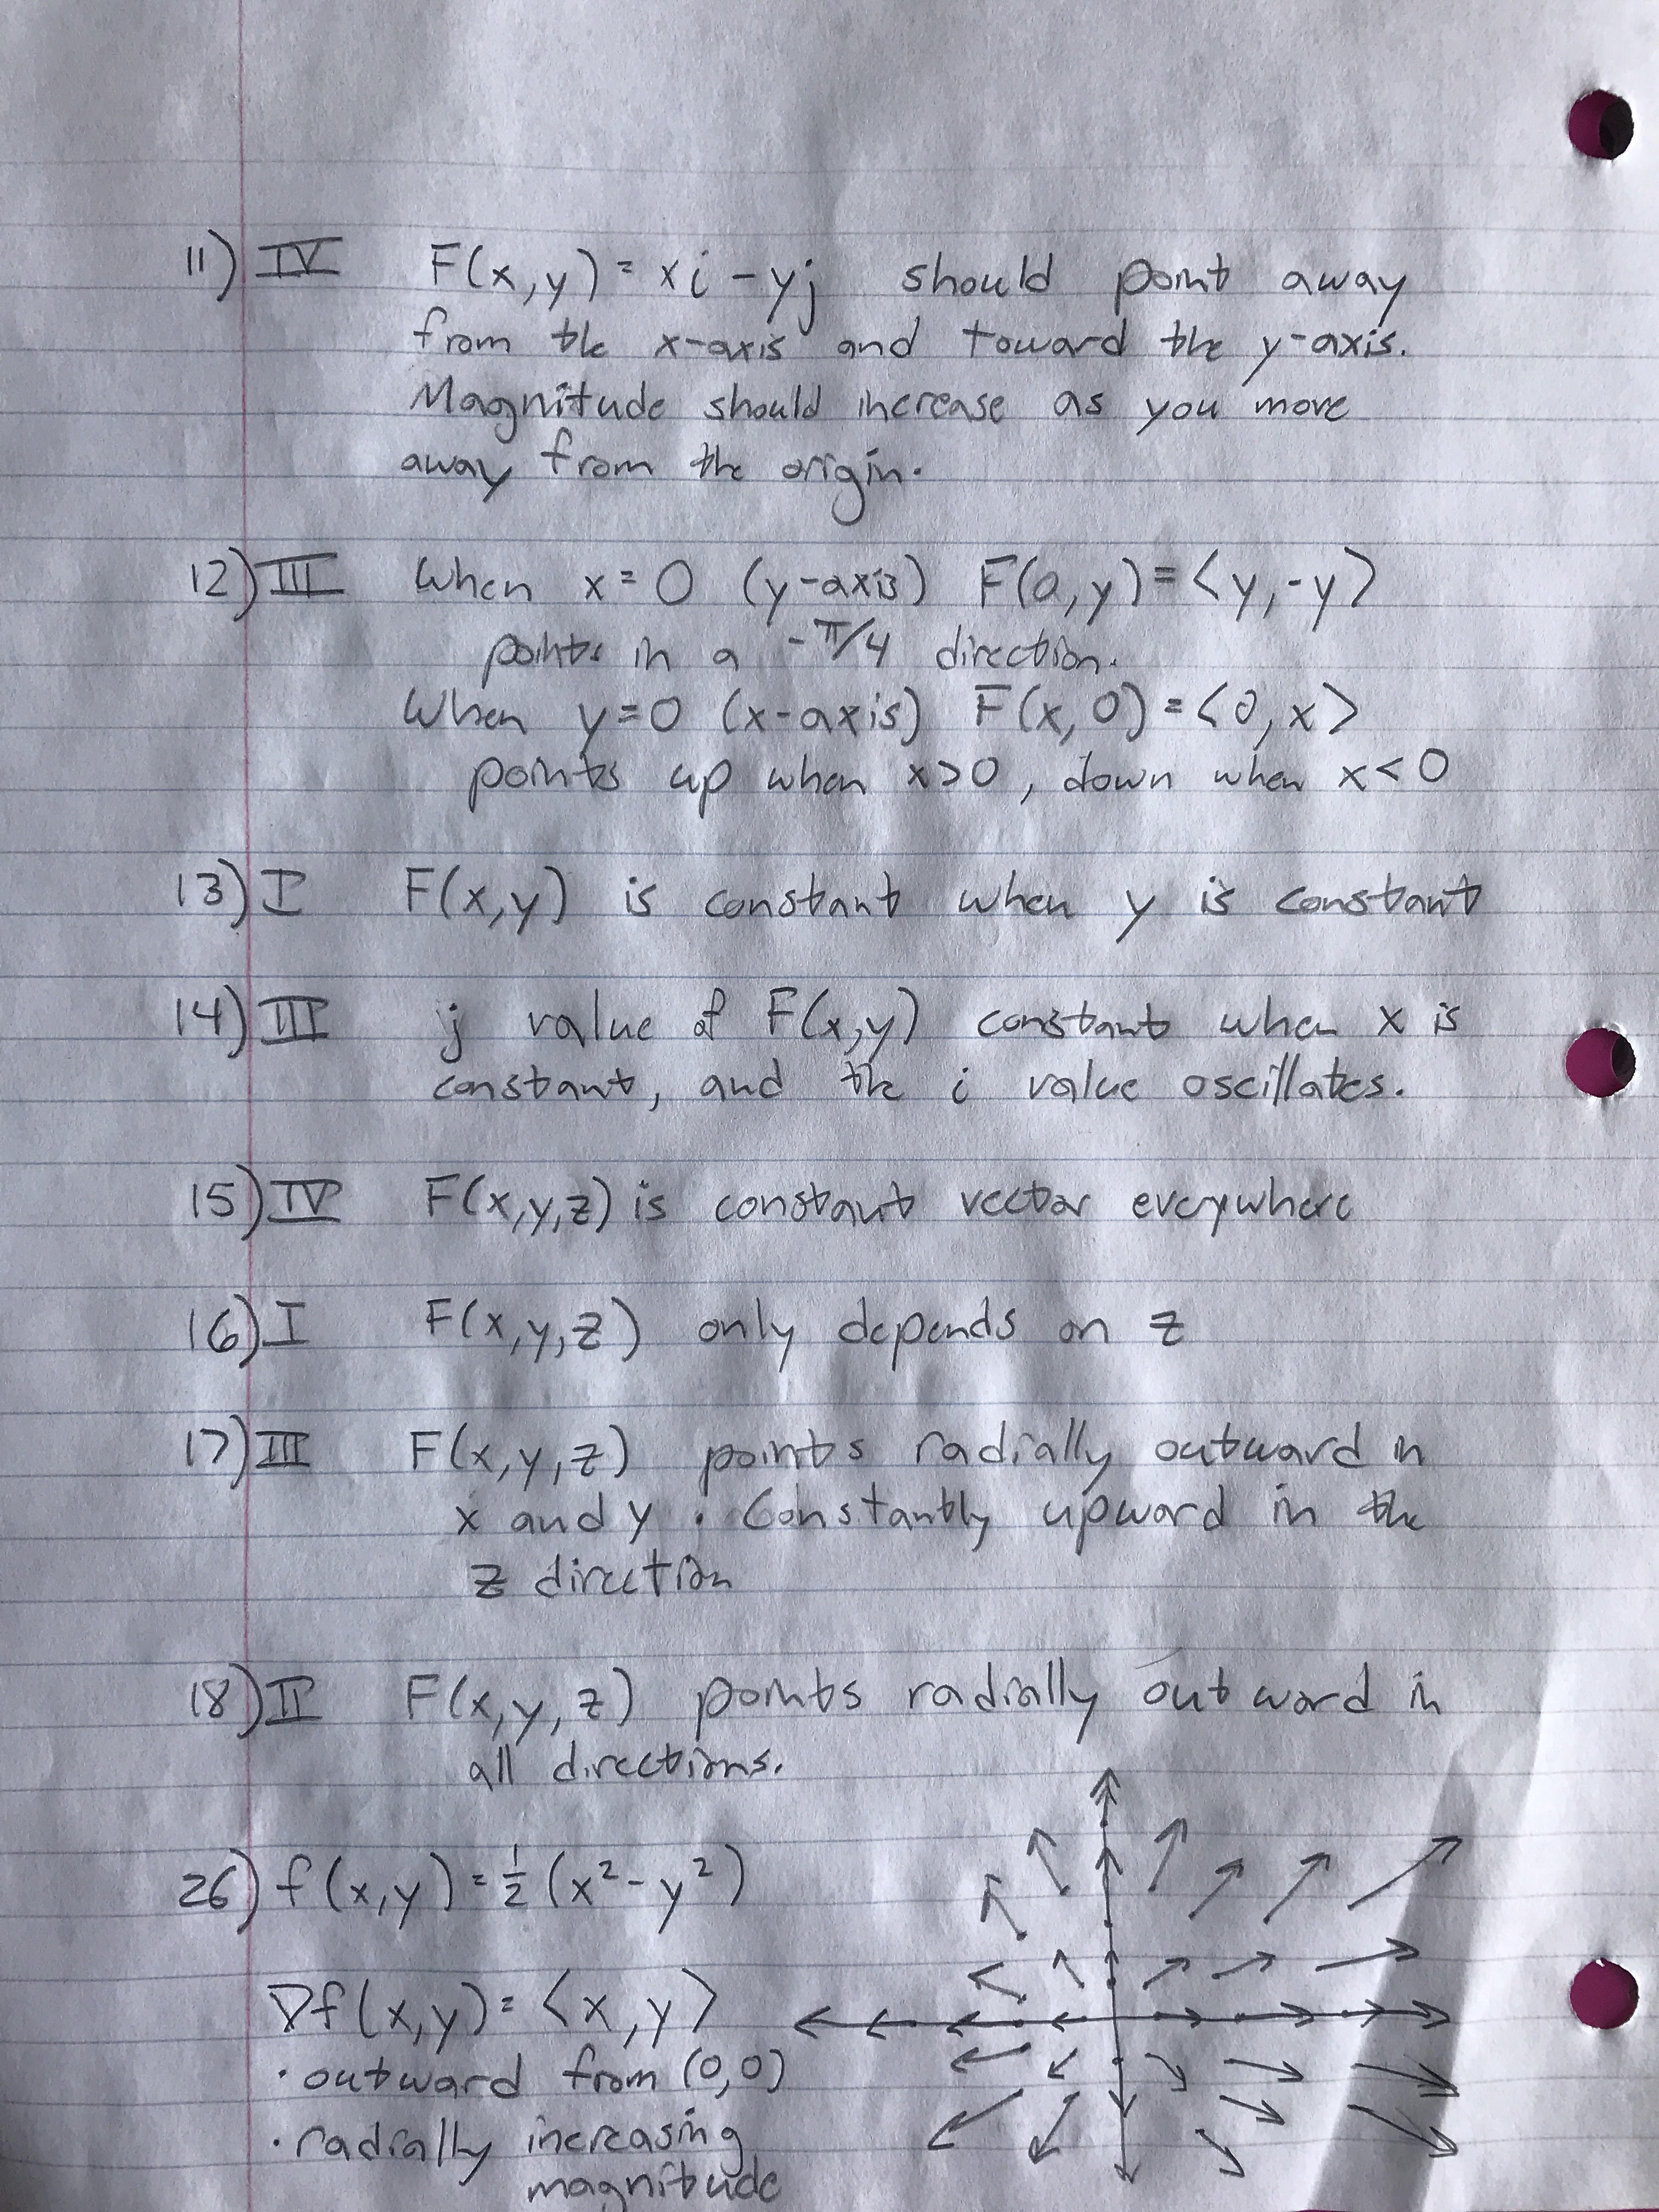 11) IV F(x,y) = xi - yj should point away
from the x-axis and toward the y-axis.
Magnitude should increase as you move
away from the origin.
12) III When x=0 (y-axis) F(0,y)=<y,-y>
points in a -π/4 direction.
When y=0 (x-axis) F(x,0)=<0,x>
points up when x>0, down when x<0
13) I F(x,y) is constant when y is constant
14) III j value of F(x,y) constant when x is
constant, and the i value oscillates.
15) IV F(x,y,z) is constant vector everywhere
16) I F(x,y,z) only depends on z
17) III F(x,y,z) points radially outward in
x and y. Constantly upward in the
z direction
18) II F(x,y,z) points radially outward in
all directions.
26) f(x,y)=½(x²-y²)
∇f(x,y)=<x,y>
· outward from (0,0)
· radially increasing
magnitude